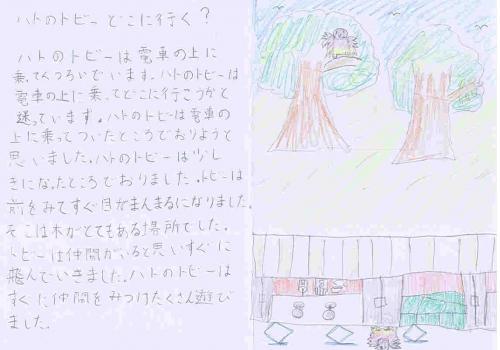 ハトのトビー どこに行く？
ハトのトビーは電車の上に
乗ってくつろいでいます。ハトのトビーは
電車の上に乗ってどこに行こうかと
迷っています。ハトのトビーは電車の
上に乗ってついたところでおりようと
思いました。ハトのトビーは少し
きになったところでおりました。トビーは
前をみてすぐ目がまんまるになりました。
そこは木がとてもある場所でした。
トビーは仲間がいると思いすぐに
飛んでいきました。ハトのトビーは
すぐに仲間をみつけたくさん遊び
ました。